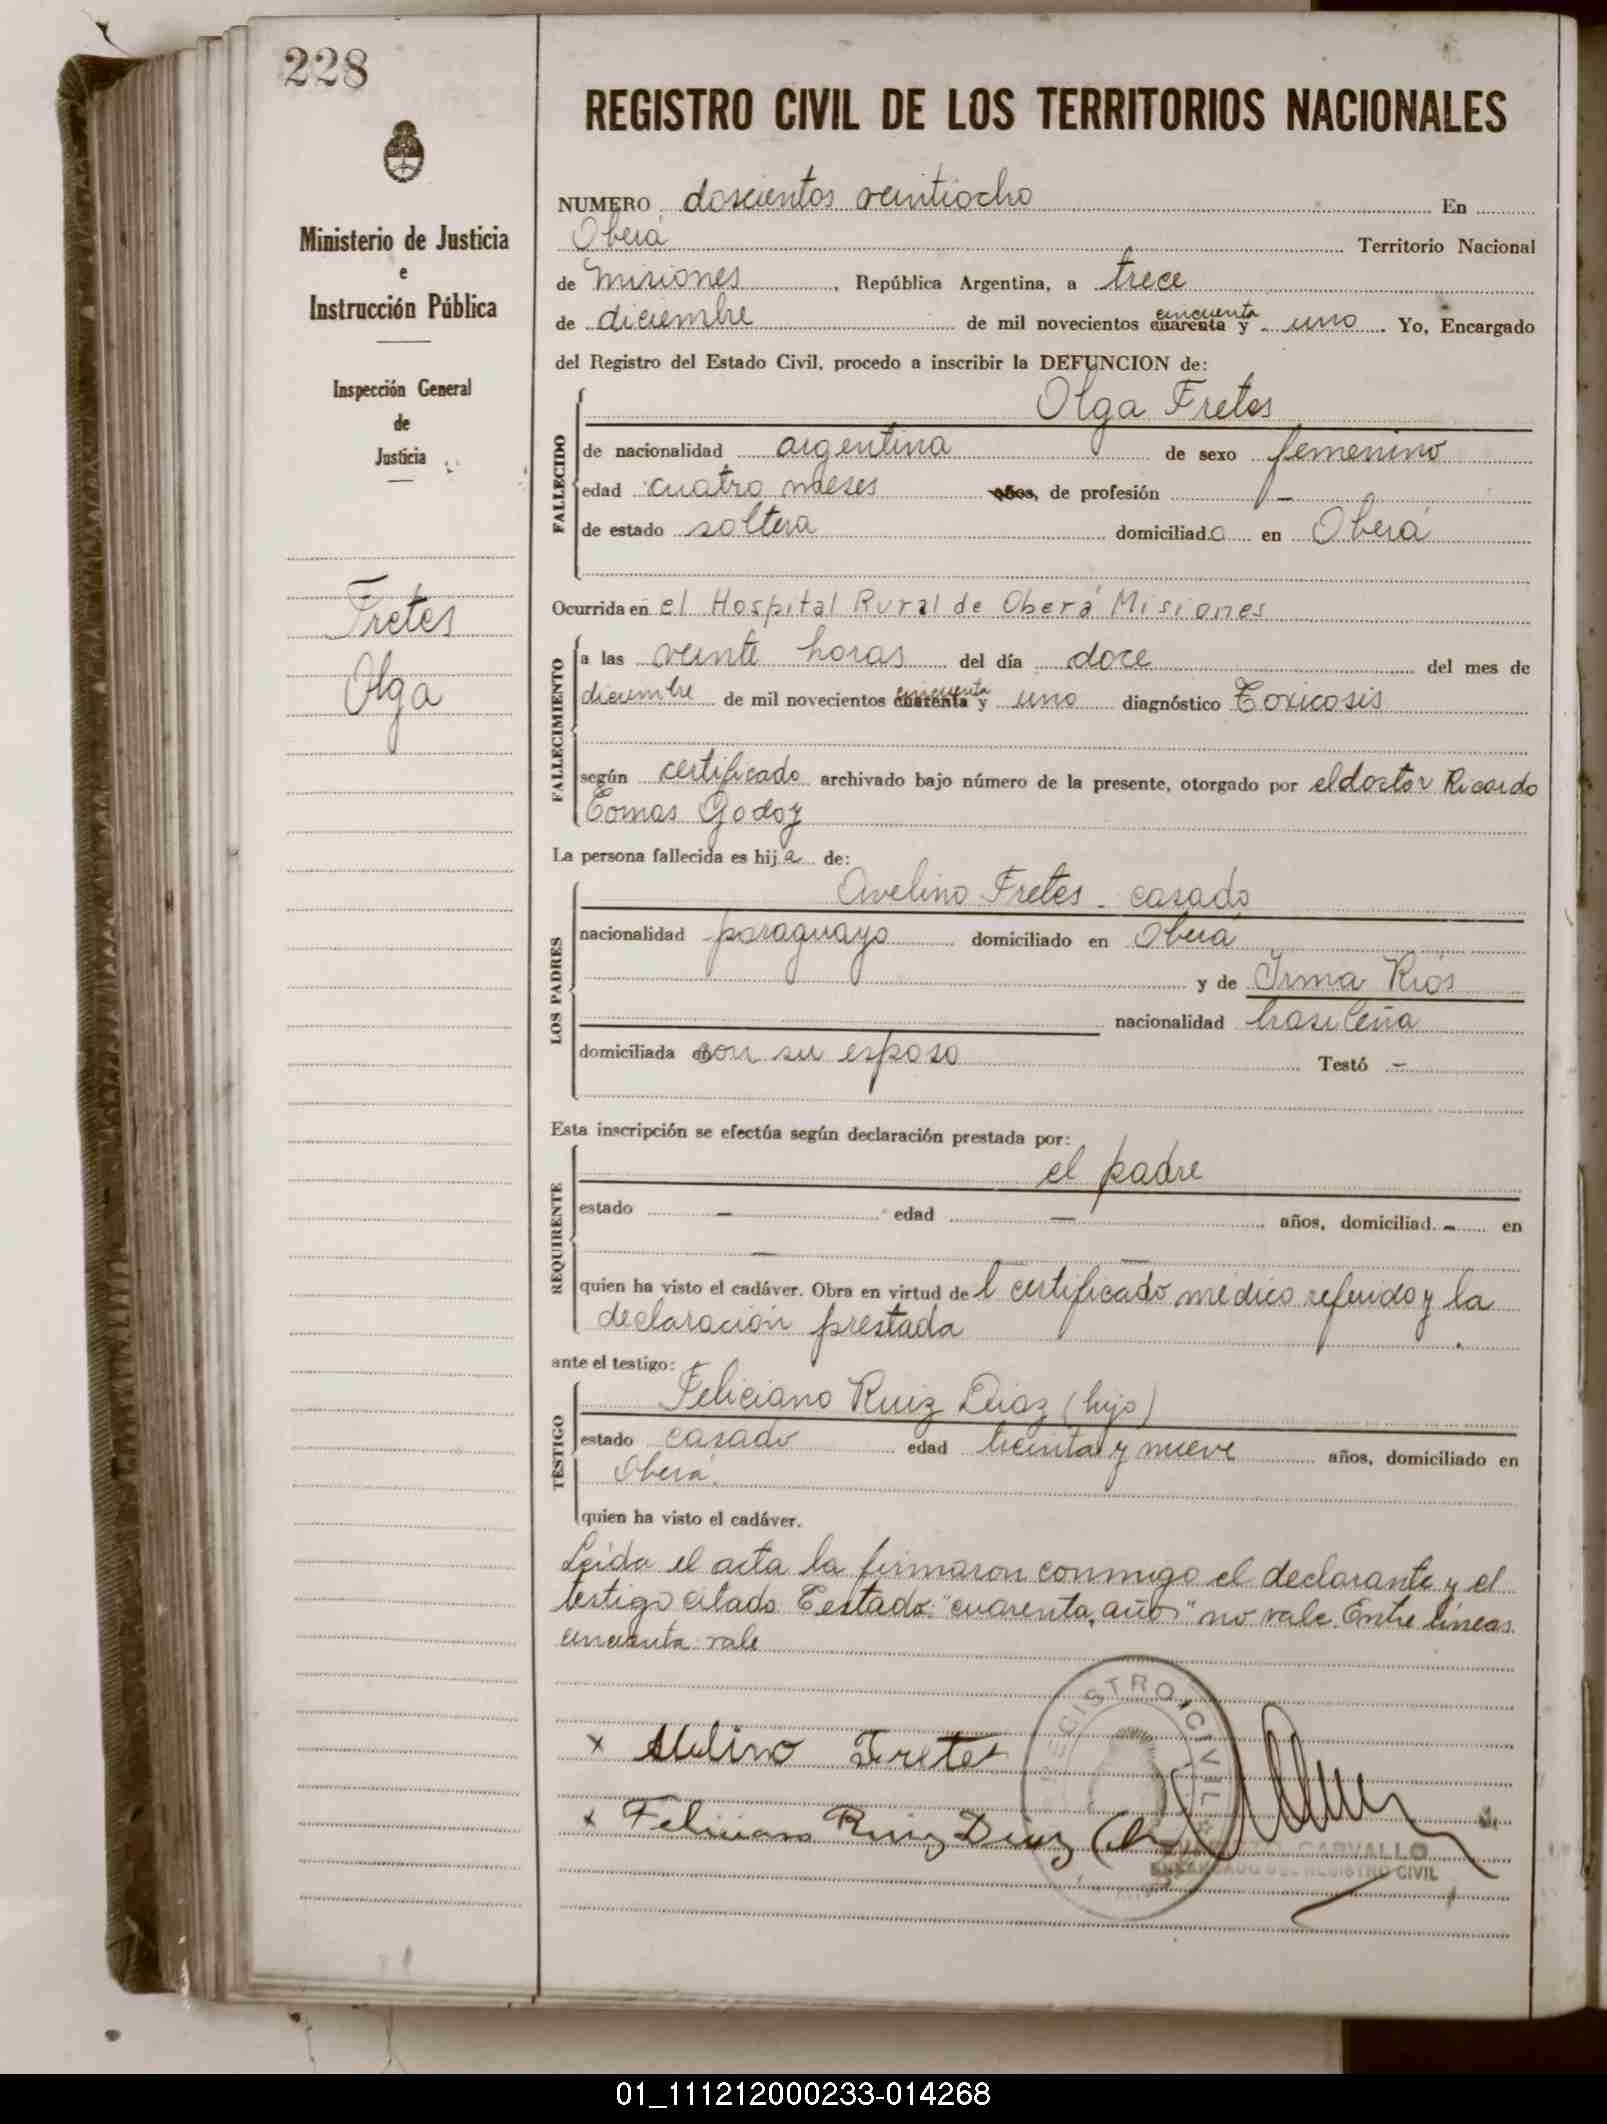 228
Ministerio de Justicia
e
Instrucción Pública
Inspección General
de
Justicia
Fretes
Olga
REGISTRO CIVIL DE LOS TERRITORIOS NACIONALES
NUMERO doscientos veintiocho En
Oberá Territorio Nacional
de Misiones, República Argentina, a trece
cincuenta
de diciembre de mil novecientos cuarenta y uno Yo, Encargado
del Registro del Estado Civil, procedo a inscribir la DEFUNCION de:
FALLECIDO
Olga Fretes
de nacionalidad argentina de sexo femenino
edad cuatro meses años, de profesión -
de estado soltera domiciliada en Oberá
Ocurrida en el Hospital Rural de Oberá Misiones
FALLECIMIENTO
a las veinte horas del día doce del mes de
cincuenta
diciembre de mil novecientos cuarenta y uno diagnóstico Toxicosis
según certificado archivado bajo número de la presente, otorgado por el doctor Ricardo
Tomas Godoy
La persona fallecida es hija de:
LOS PADRES
Avelino Fretes - casado
nacionalidad paraguayo domiciliado en Oberá
y de Irma Rios
nacionalidad brasileña
domiciliada en con su esposo Testó -
Esta inscripción se efectúa según declaración prestada por:
REQUIRENTE
el padre
estado - edad - años, domiciliad - en
- -
quien ha visto el cadáver. Obra en virtud del certificado médico referido y la
declaración prestada
ante el testigo:
TESTIGO
Feliciano Ruiz Diaz (hijo)
estado casado edad treinta y nueve años, domiciliado en
Oberá
quien ha visto el cadáver.
Leída el acta la firmaron conmigo el declarante y el
testigo citado. Testado: "cuarenta, años" no vale. Entre líneas
cincuenta vale
x Avelino Fretes
x Feliciano Ruiz Diaz
REGISTRO CIVIL
CARVALLO
ENCARGADO DEL REGISTRO CIVIL
01_111212000233-014268